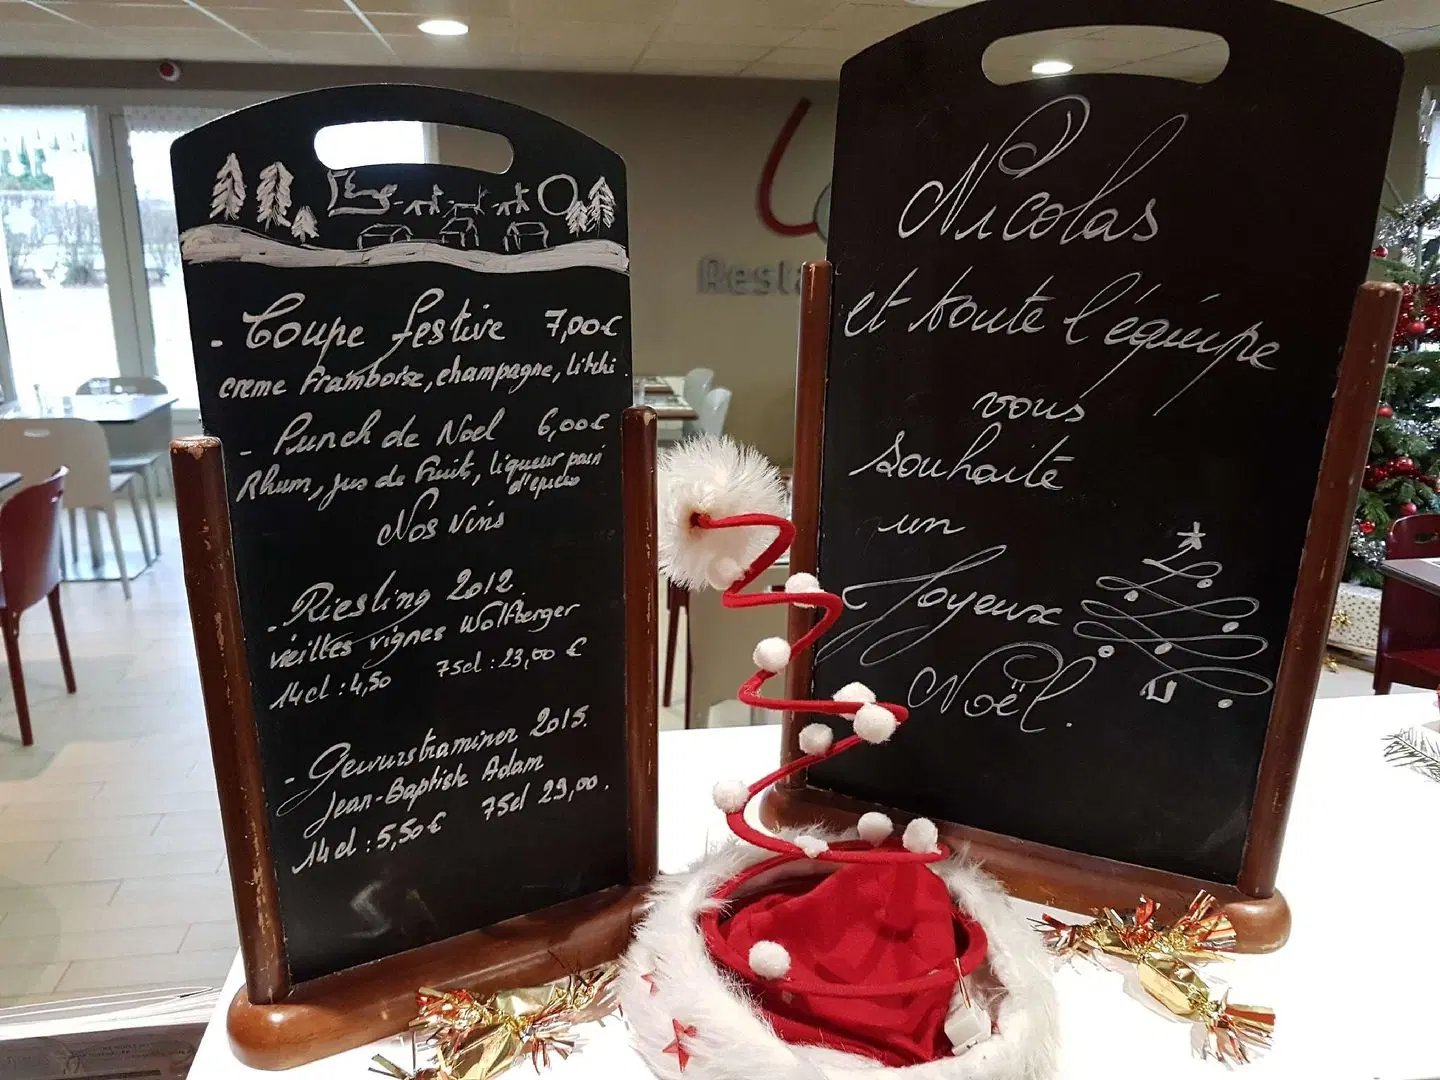 - Coupe festive 7,00€
creme Framboise, champagne, litchi.
- Punch de Noel 6,00€
Rhum, jus de fruits, liqueur pain
d'epices
Nos vins
- Riesling 2012
vieilles vignes Wolfberger
14cl : 4,50 75cl : 23,00 €
- Gewurstraminer 2015.
Jean-Baptiste Adam
14cl : 5,50€ 75cl 29,00.
Resta
Nicolas
et toute l'équipe
vous
souhaite
un
Joyeux
Noël.